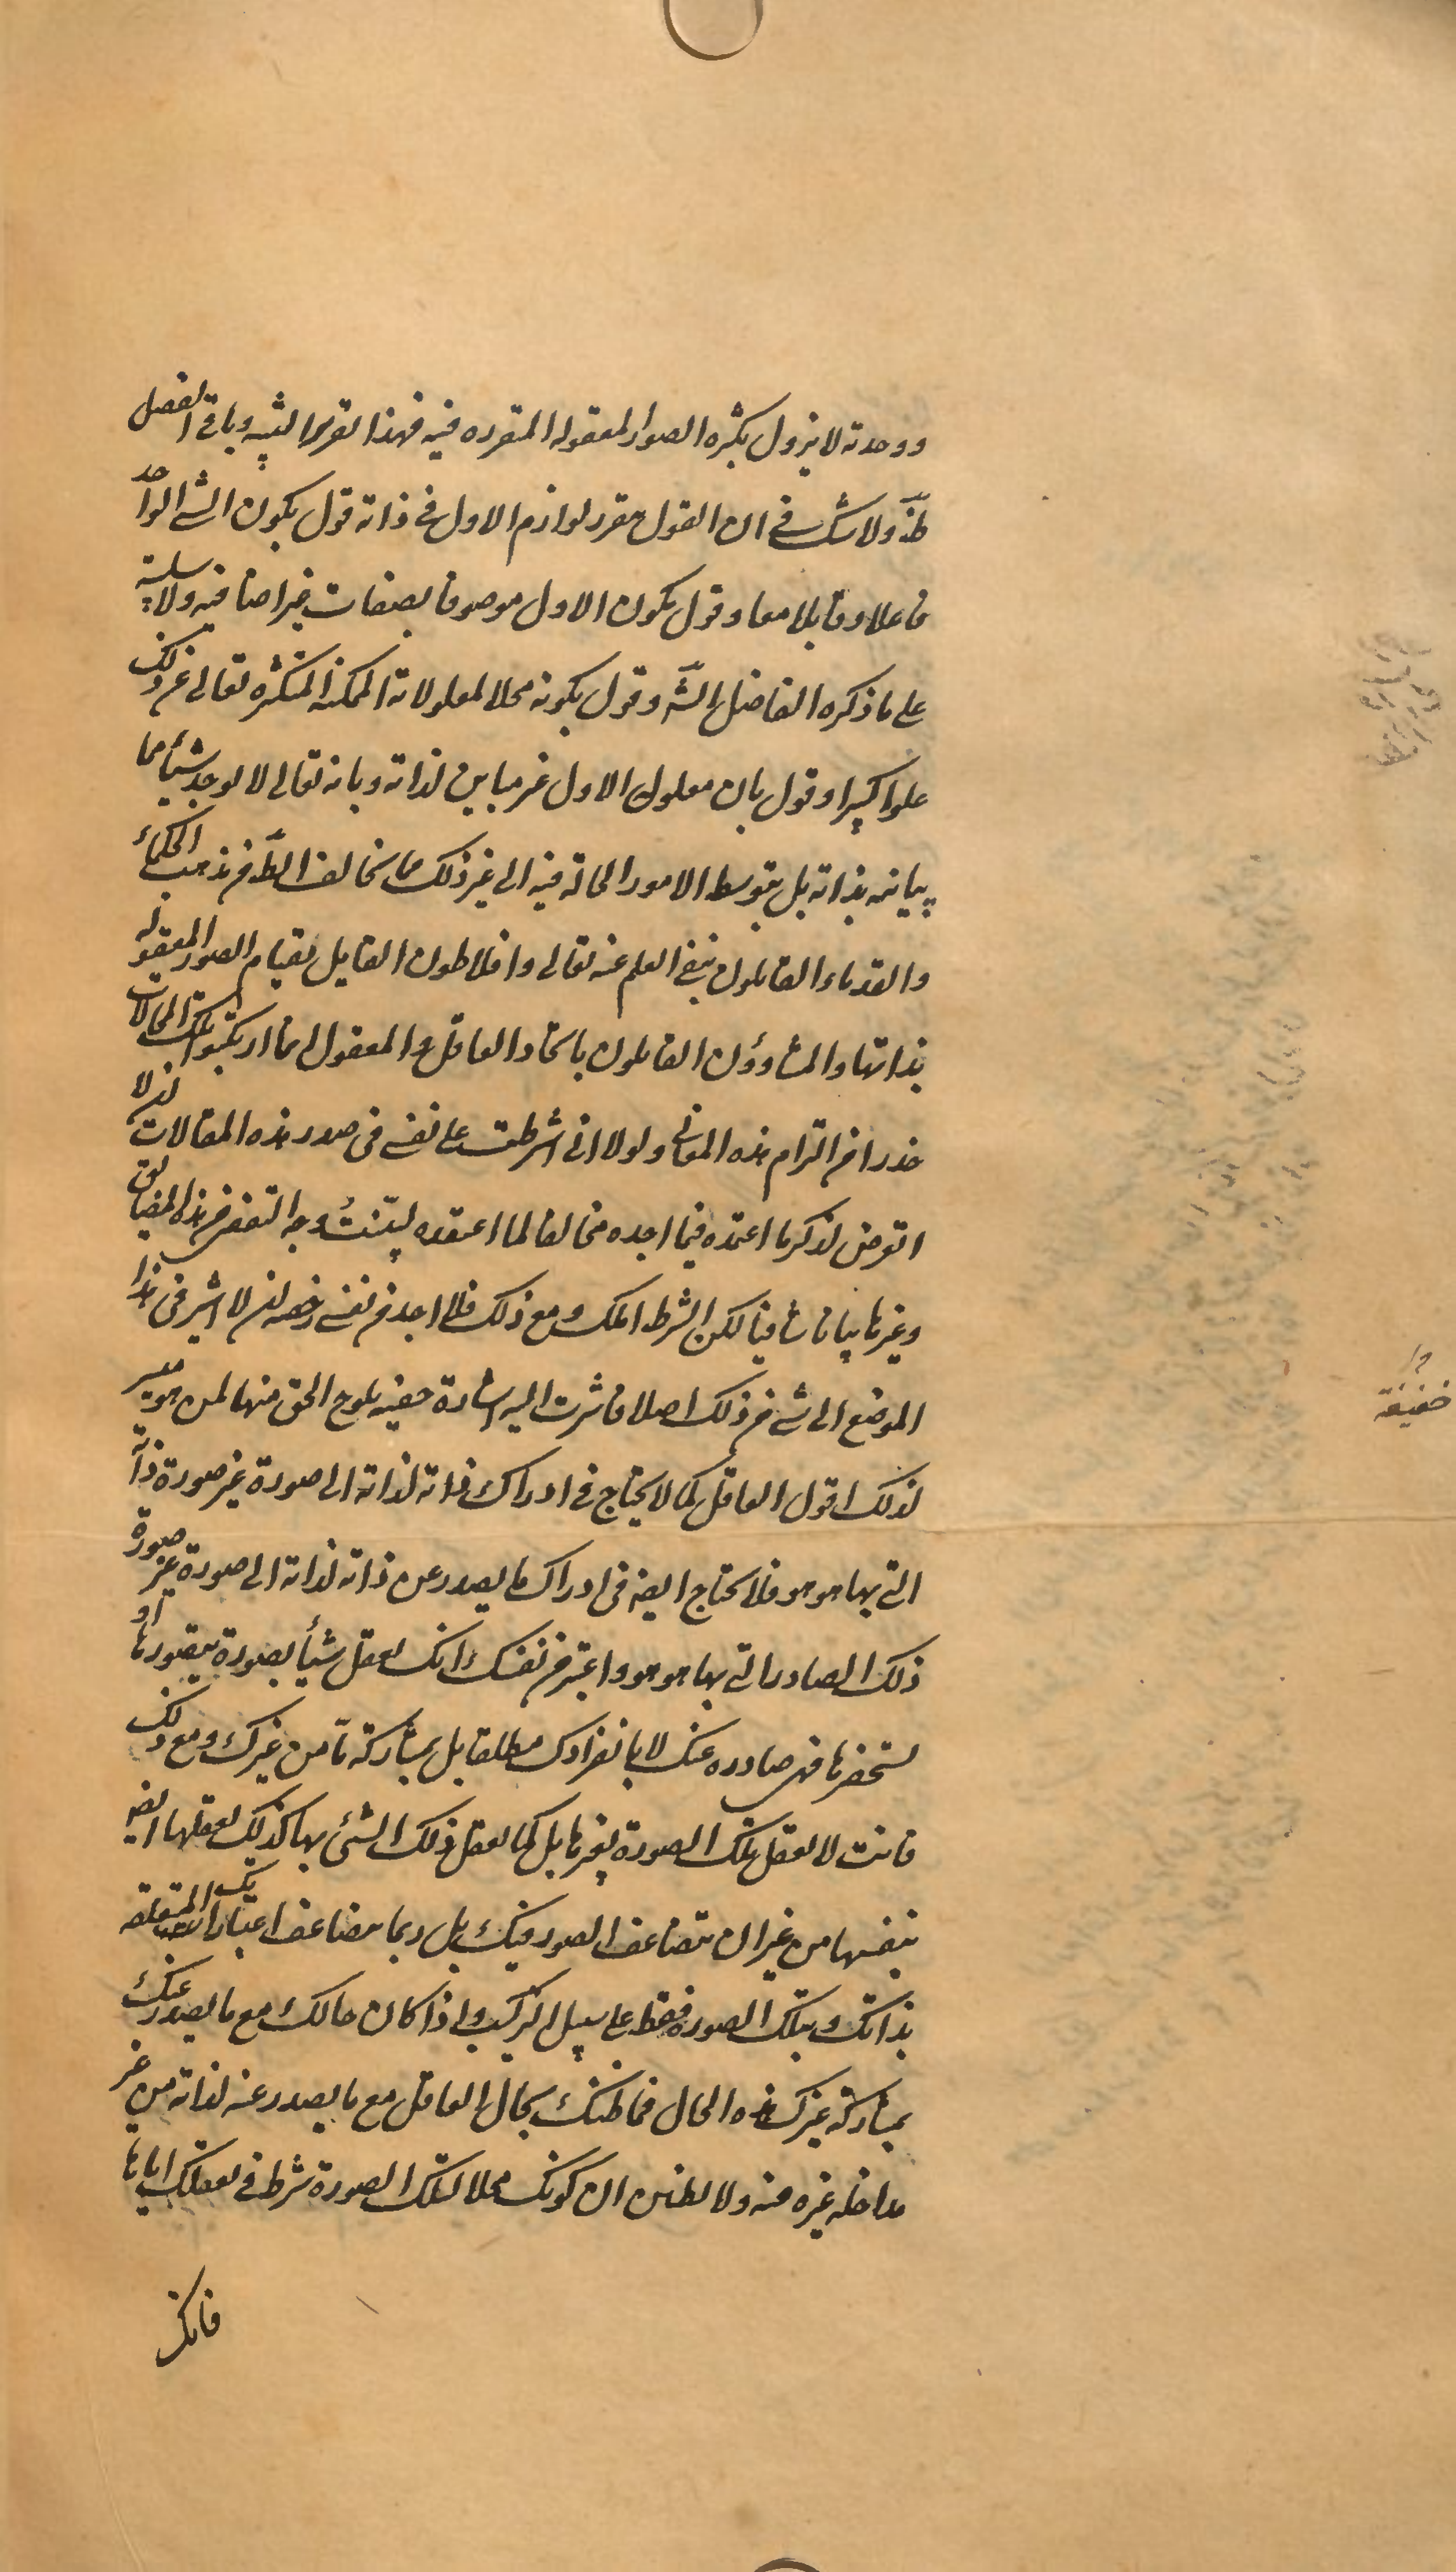 ووحدته لا يزول بكثره الصور المعقوله المتقرره فيه فهذا تقرير التنبيه وباقي الفصل
ظ ولا شك في ان القول بتقرر لوازم الاول في ذاته قول بكون الشي الواحد
فاعلا وقابلا معا وقول بكون الاول موصوفا بصفات غير اضافيه ولا سلبية
على ما ذكره الفاضل الشـ وقول بكونه محلا لمعلولاته الممكنه المتكثره تعالى عن ذلك
علوا كبيرا وقول بان معلول الاول غير مباين لذاته وبانه تعالى لا يوجد شيأ مما
يباينه بذاته بل بتوسط الامور الحالة فيه الى غير ذلك مما يخالف الظ من مذهب الحكماء
والقدماء القائلون بنفي العلم عنه تعالى وافلاطون القايل بقيام الصور المعقوله
بذاتها والمشاوؤن القايلون باتحاد العاقل والمعقول انما ارتكبوا تلك المحالات
حذرا من التزام هذه المعانى ولولا انى اشترطت على نفسي في صدر هذه المقالات ان لا
اتعرض لذكر ما اعتمده فيما اجده مخالفا لما اعتقده لبيّنتُ وجه التفصي من هذه المضايق
وغيرها بيانا شافيا لكن الشرط املك ومع ذلك فلا اجد من نفسي رخصه ان لا اشير في هذا
الموضع الى شي من ذلك اصلا فاشرت اليه اشارة خفيه يلوح الحق منها لمن هو ميسر
لذلك اقول العاقل كما لا يحتاج في ادراك ذاته لذاته الى صورة غير صورة ذاته
التي بها هو هو فلا يحتاج ايضه في ادراك ما يصدر عن ذاته لذاته الى صورة غير صورة
ذلك الصادر التي بها هو هو واعتبر من نفسك انك تعقل شيأ بصورة تتصورها او
تستحضرها فهى صادره عنك لا بانفرادك مطلقا بل بمشاركة ما من غيرك ومع ذلك
فانت لا تعقل تلك الصورة بغيرها بل كما تعقل ذلك الشئ بها كذلك تعقلها ايضه
بنفسها من غير ان تتضاعف الصور فيك بل ربما تتضاعف اعتباراتك المتعلقه
بذاتك وبتلك الصورة فقط على سبيل التركيب واذا كان حالك مع ما يصدر عنك
بمشاركة غيرك هذه الحال فما ظنك بحال العاقل مع ما يصدر عنه لذاته من غير
مداخله غيره فيه ولا تظنن ان كونك محلا لتلك الصورة شرط في تعقلك اياها
فانك
خفيفة